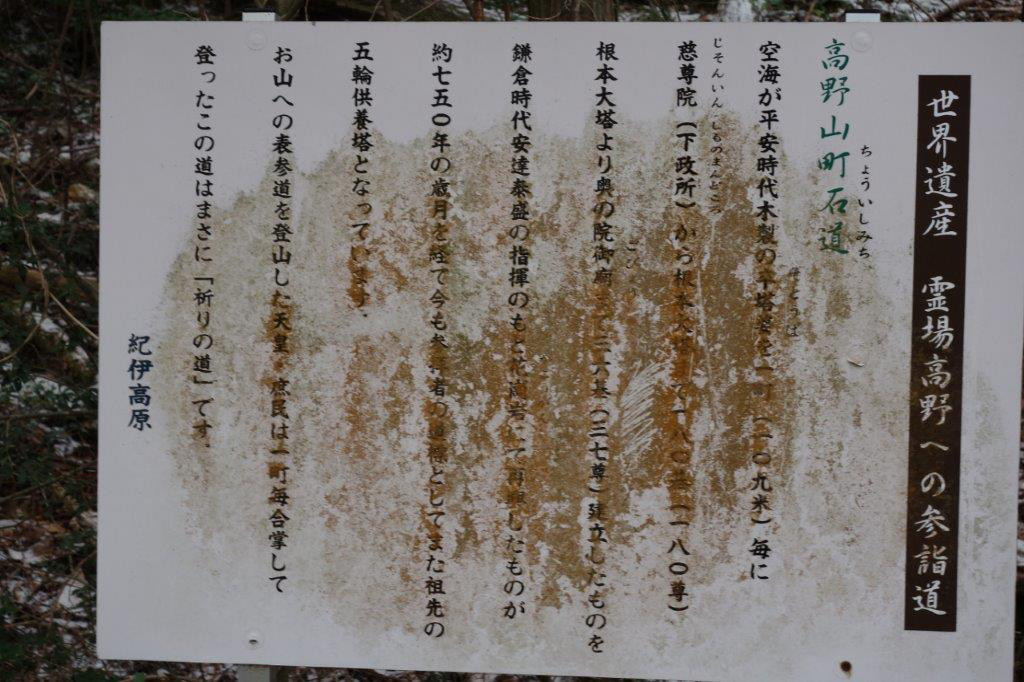 世界遺産 霊場高野への参詣道
高野山町石道
ちょういしみち
空海が平安時代木製の卒塔婆を一町（一〇九米）毎に
そとうば
慈尊院（下政所）から根本大塔まで一八〇基（一八〇尊）
じそんいん しものまんどころ
根本大塔より奥の院御廟まで三六基（三七尊）建立したものを
鎌倉時代安達泰盛の指揮のもと花崗岩にて再建したものが
約七五〇年の歳月を経て今も参拝者の道標としてまた祖先の
五輪供養塔となっています．
お山への表参道を登山した天皇、庶民は一町毎合掌して
登ったこの道はまさに「祈りの道」です．
紀伊高原